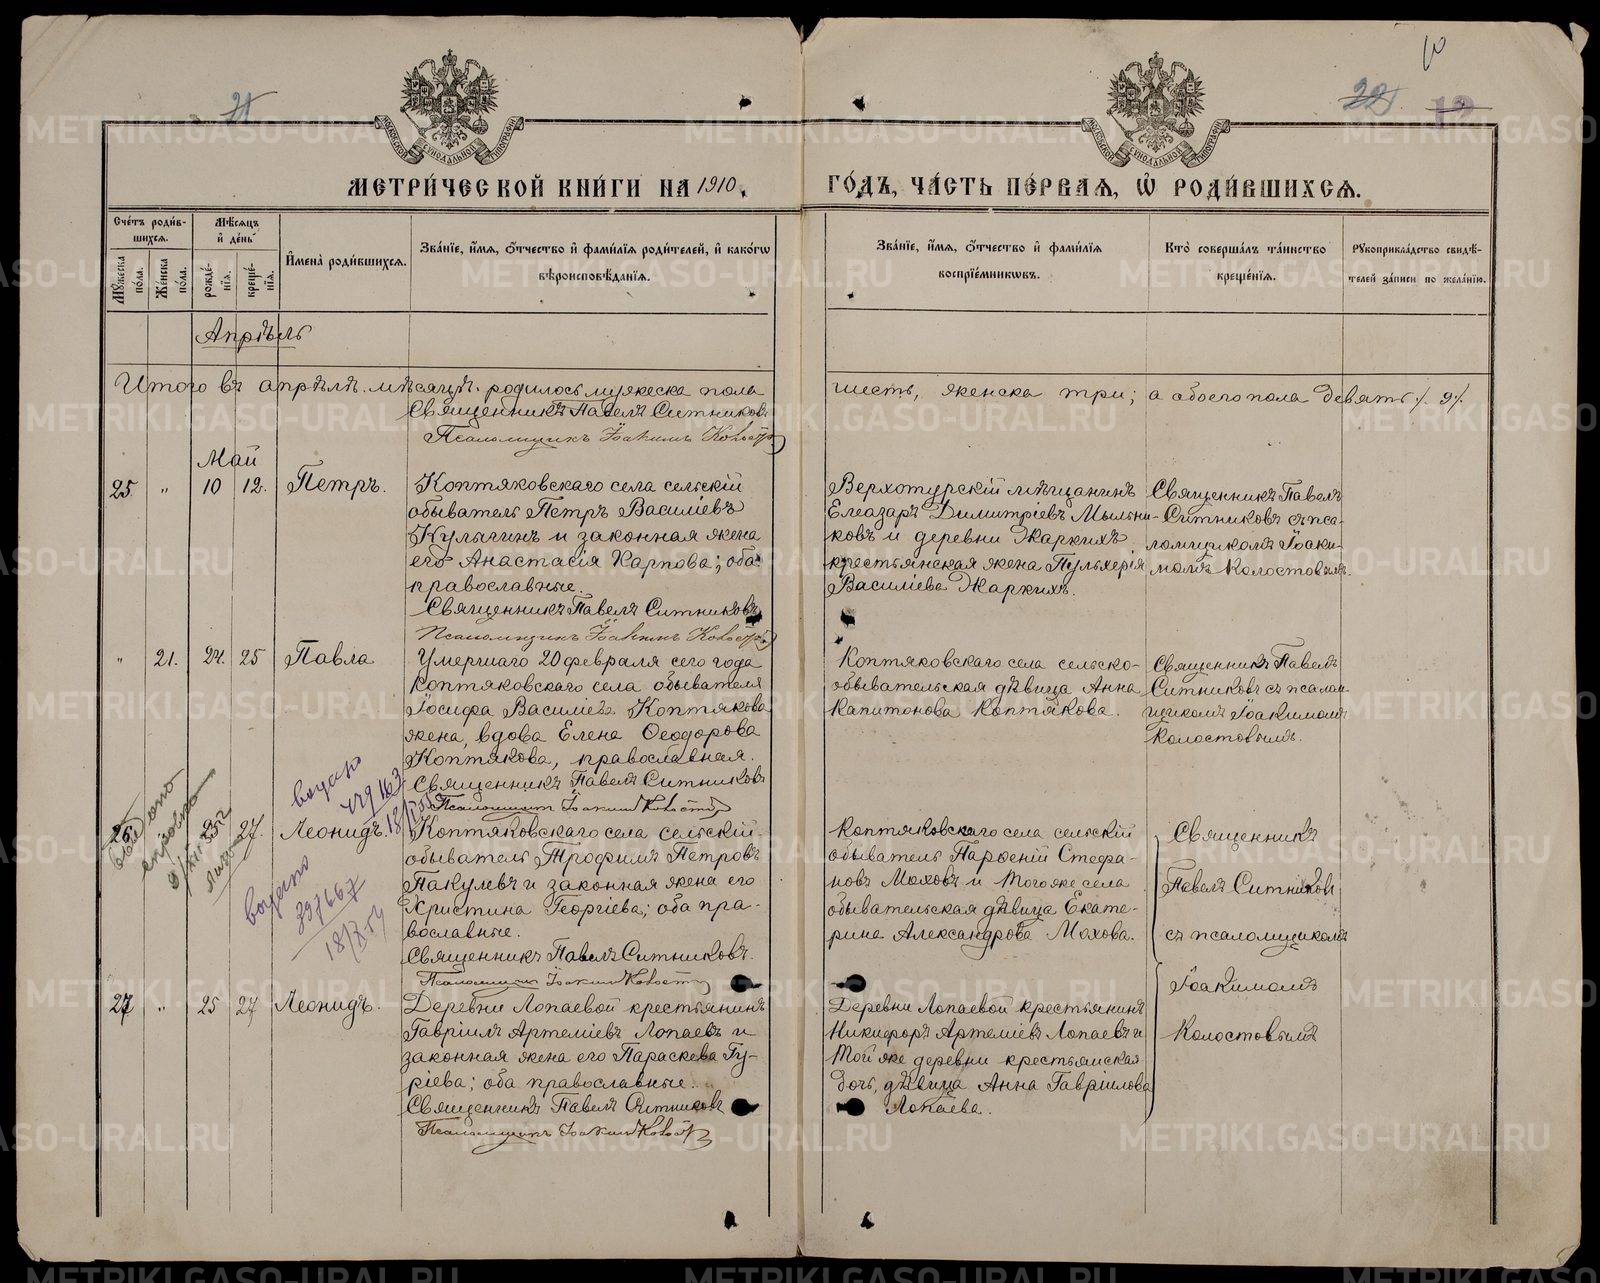 10
21
22
12
МЕТРИ́ЧЕСКОЙ КНИ́ГИ НА 1910
ГО́ДЪ, ЧА́СТЬ ПЕ́РВАЯ, Ѡ҆ РОДИ́ВШИХСЯ.
Сче́тъ роди́в-
шихся.
Мꙋ́жеска по́ла.
Же́нска по́ла.
Мѣ́сяцъ
и҆ де́нь
рожде́-
нїя.
креще́-
нїя.
И҆мена̀ роди́вшихся.
Зва́нїе, и҆́мя, ѻ҆́тчество и҆ фами́лїя роди́телей, и҆ како́гѡ
вѣроисповѣ́данїя.
Зва́нїе, и҆́мя, ѻ҆́тчество и҆ фами́лїя
воспрїе́мникѡвъ.
Кто̀ соверша́лъ та́инство
креще́нїя.
Рꙋкоприкла́дство свидѣ́-
телей за́писи по жела́нїю.
Апрѣль
Итого въ апрѣлѣ мѣсяцѣ родилось мужеска пола
шесть, женска три; а обоего пола девять /. 9/.
Священникъ Павелъ Ситниковъ
Псаломщикъ Іоакимъ
Май
25 " 10 12. Петръ.
Коптяковскаго села сельскій
обыватель Петръ Василіевъ
Кулыгинъ и законная жена
его Анастасія Карпова; оба
православные.
Священникъ Павелъ Ситниковъ
Псаломщикъ Іоакимъ
Верхотурскій мѣщанинъ
Елеазаръ Димитріевъ Мыльни-
ковъ и деревни Жаркихъ
крестьянская жена Пульхерія
Василіева Жаркихъ.
Священникъ Павелъ
Ситниковъ съ пса-
ломщикомъ Іоаки-
момъ Колостовымъ.
" 21. 24. 25 Павла
Умершаго 20 февраля сего года
Коптяковскаго села обывателя
Іосифа Василіева Коптякова
жена, вдова Елена Ѳеодорова
Коптякова, православная.
Священникъ Павелъ Ситниковъ
Псаломщикъ Іоакимъ
Коптяковскаго села сельско-
обывательская дѣвица Анна
Капитонова Коптякова.
Священникъ Павелъ
Ситниковъ съ псалом
щикомъ Іоакимомъ
Колостовымъ.
26. 25 27. Леонидъ.
Коптяковскаго села сельскій
обыватель Трофимъ Петровъ
Пакулевъ и законная жена его
Христина Георгіева; оба пра-
вославные.
Священникъ Павелъ Ситниковъ.
Псаломщикъ Іоакимъ
Коптяковскаго села сельскій
обыватель Парѳеній Стефа-
новъ Моховъ и того же села
обывательская дѣвица Екате-
рина Александрова Мохова.
Священникъ
Павелъ Ситниковъ
съ псаломщикомъ
Іоакимомъ
Колостовымъ
397667
27 " 25 27 Леонидъ.
Деревни Лопаевой крестьянинъ
Гавріилъ Артеміевъ Лопаевъ и
законная жена его Параскева Гу-
ріева; оба православные.
Священникъ Павелъ Ситниковъ
Псаломщикъ Іоакимъ
Деревни Лопаевой крестьянинъ
Никифоръ Артеміевъ Лопаевъ и
той же деревни крестьянская
дочь, дѣвица Анна Гавріилова
Лопаева.
METRIKI.GASO-URAL.RU